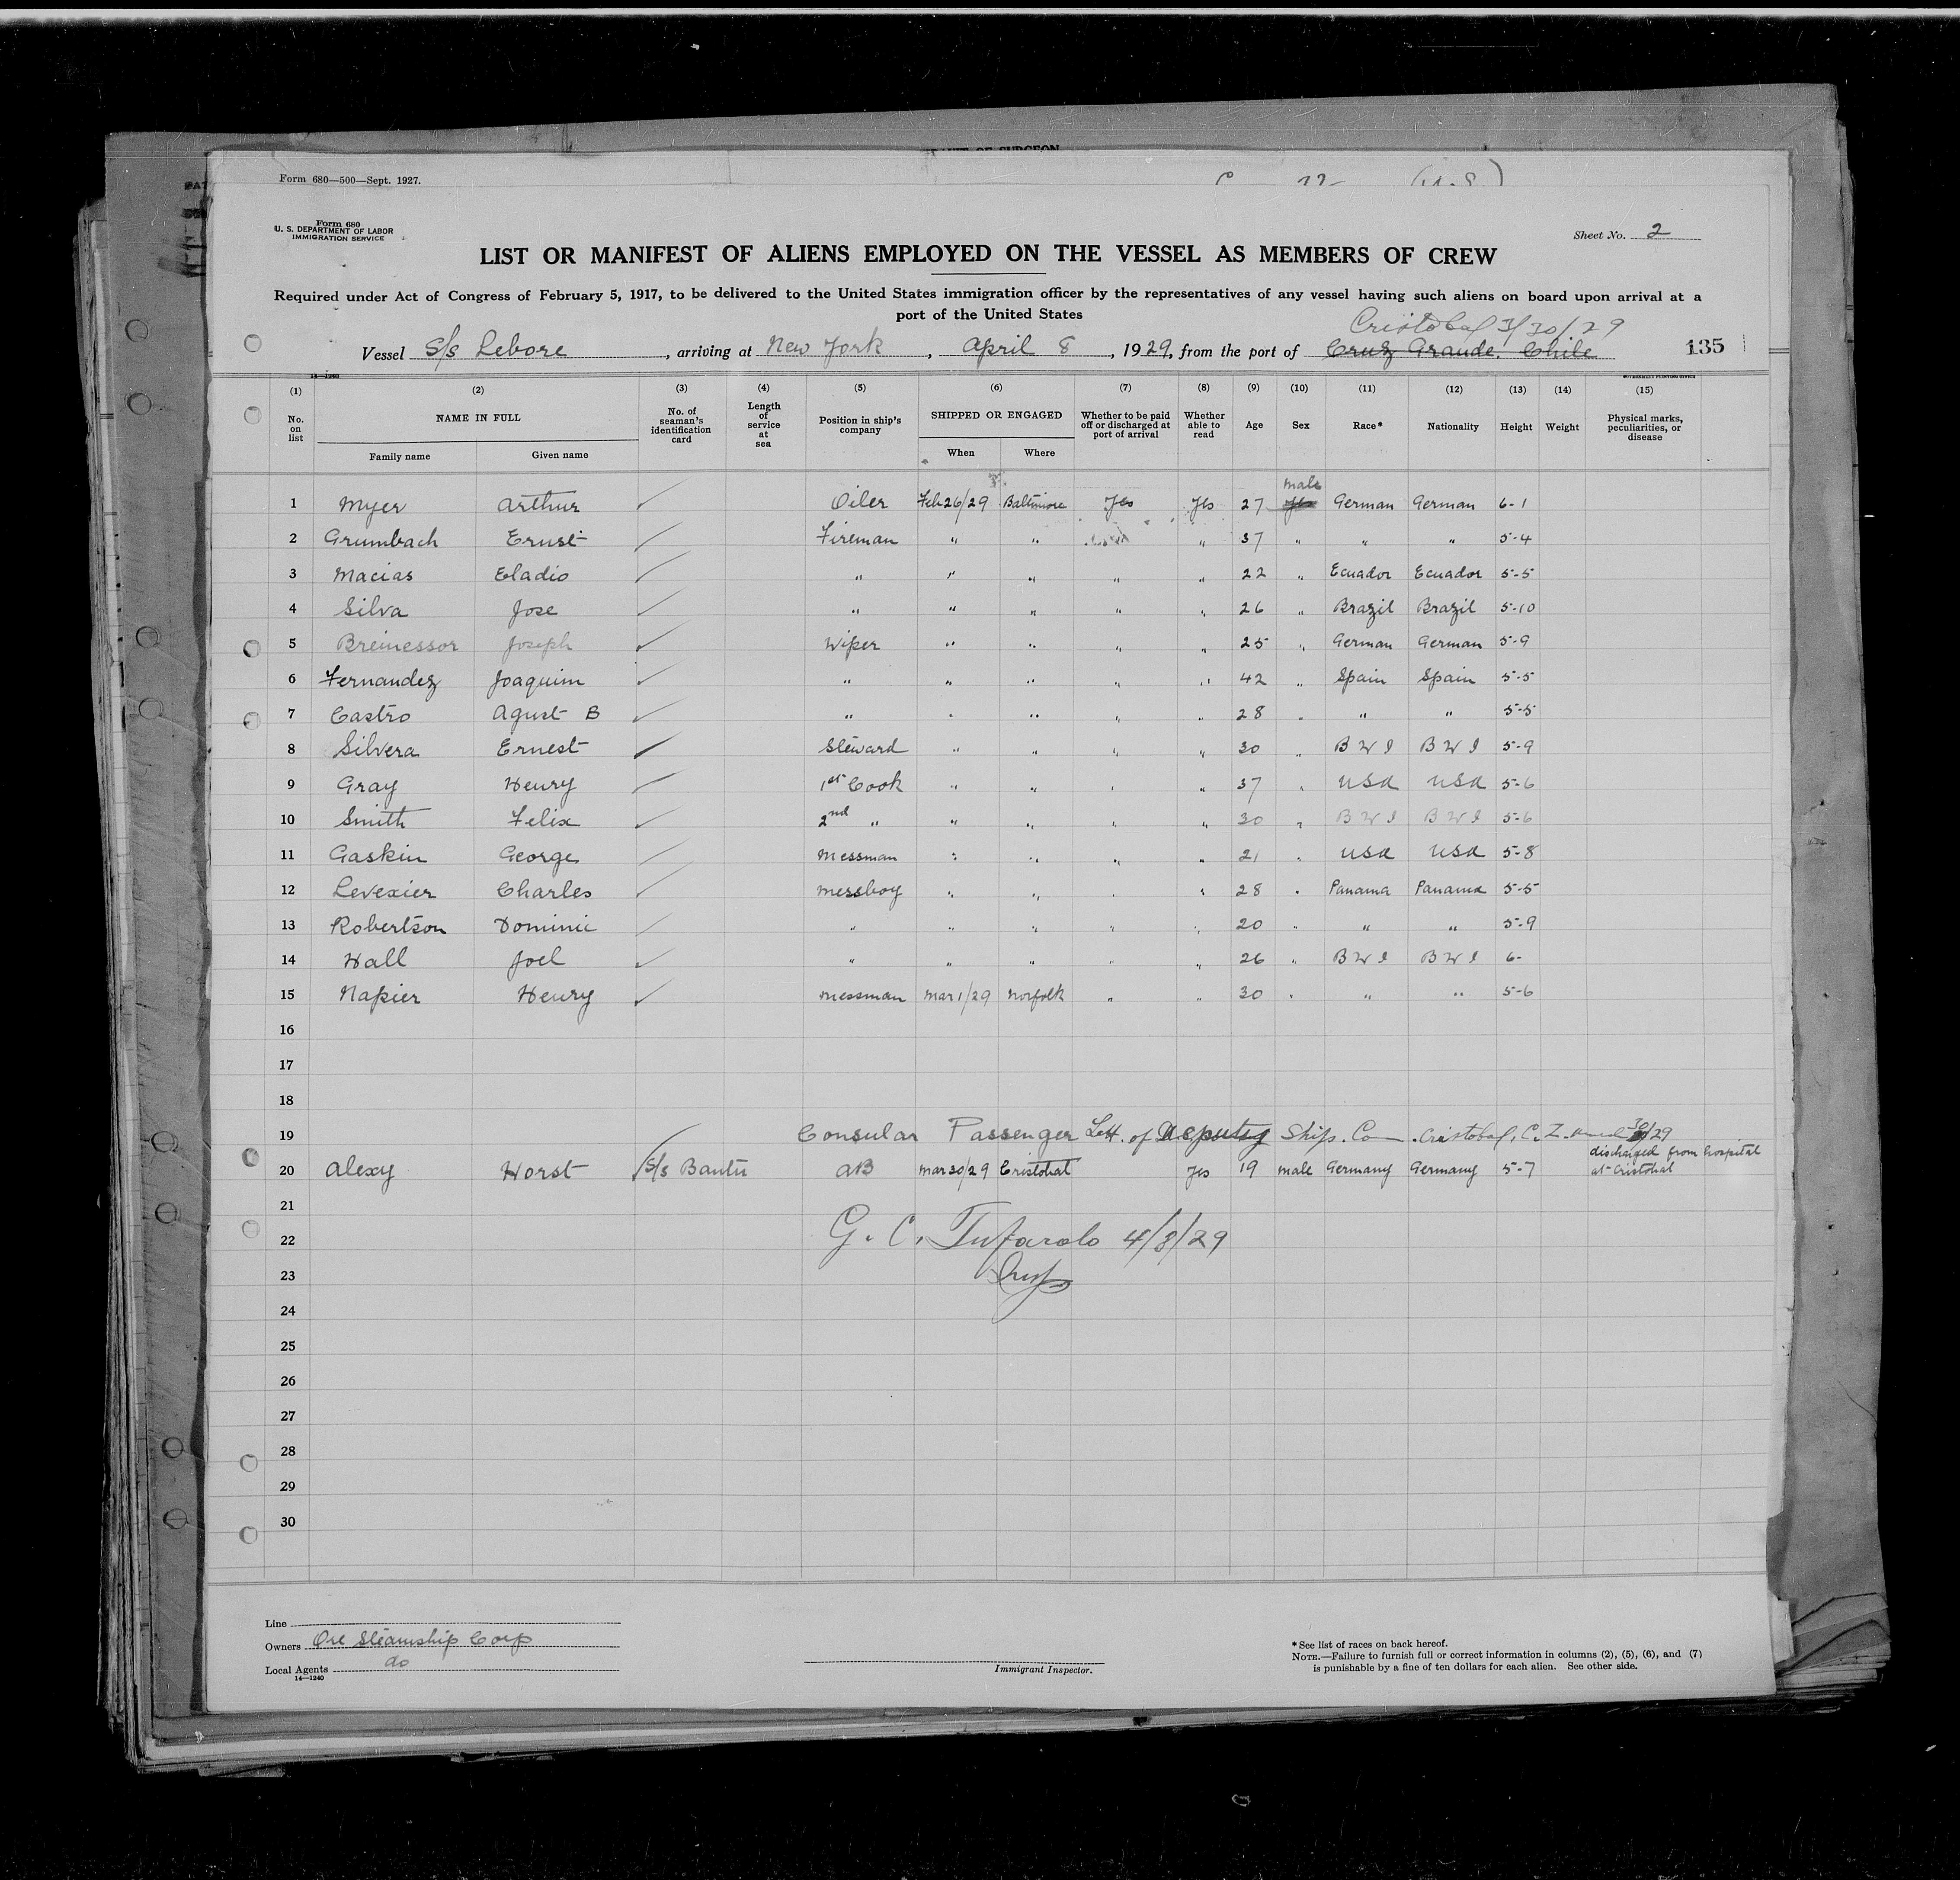 Form 680—500—Sept. 1927.
Form 680
U. S. DEPARTMENT OF LABOR
IMMIGRATION SERVICE
Sheet No. 2
LIST OR MANIFEST OF ALIENS EMPLOYED ON THE VESSEL AS MEMBERS OF CREW
Required under Act of Congress of February 5, 1917, to be delivered to the United States immigration officer by the representatives of any vessel having such aliens on board upon arrival at a
port of the United States
Cristobal 3/30/29
Vessel S/s Lebore, arriving at New York, April 8, 1929, from the port of Cruz Grande. Chile 135
14—1240
(1) (2) (3) (4) (5) (6) (7) (8) (9) (10) (11) (12) (13) (14) (15)
No. on list NAME IN FULL Family name Given name No. of seaman's identification card Length of service at sea Position in ship's company SHIPPED OR ENGAGED When Where Whether to be paid off or discharged at port of arrival Whether able to read Age Sex Race* Nationality Height Weight Physical marks, peculiarities, or disease
male
1 Myer Arthur Oiler Feb 26/29 Baltimore Yes Yes 27 Yes German German 6-1
2 Grumbach Ernst Fireman " " " 37 " " " 5-4
3 Macias Eladio " " " " " 22 " Ecuador Ecuador 5-5
4 Silva Jose " " " " " 26 " Brazil Brazil 5-10
5 Breinessor Joseph Wiper " " " " 25 " German German 5-9
6 Fernandez Joaquim " " " " " 42 " Spain Spain 5-5
7 Castro Agust B " " " " " 28 " " " 5-5
8 Silvera Ernest Steward " " " " 30 " B W I B W I 5-9
9 Gray Henry 1st Cook " " " " 37 " USA USA 5-6
10 Smith Felix 2nd " " " " " 30 " B W I B W I 5-6
11 Gaskin George Messman " " " " 21 " USA USA 5-8
12 Levexier Charles Messboy " " " " 28 " Panama Panama 5-5
13 Robertson Dominic " " " " " 20 " " " 5-9
14 Hall Joel " " " " " 26 " B W I B W I 6-
15 Napier Henry Messman Mar 1/29 Norfolk " " 30 " " " 5-6
16
17
18
19 Consular Passenger Lett. of Deputy Ship. Co Cristobal, C. Z. 30/29
discharged from hospital
20 Alexy Horst S/s Bantu AB Mar 30/29 Cristobal Yes 19 male Germany Germany 5-7 at Cristobal
21
22 G. C. Tufarolo 4/8/29
23 Insp
24
25
26
27
28
29
30
Line
Owners Ore Steamship Corp
Local Agents do
14—1240
Immigrant Inspector.
*See list of races on back hereof.
NOTE.—Failure to furnish full or correct information in columns (2), (5), (6), and (7)
is punishable by a fine of ten dollars for each alien. See other side.